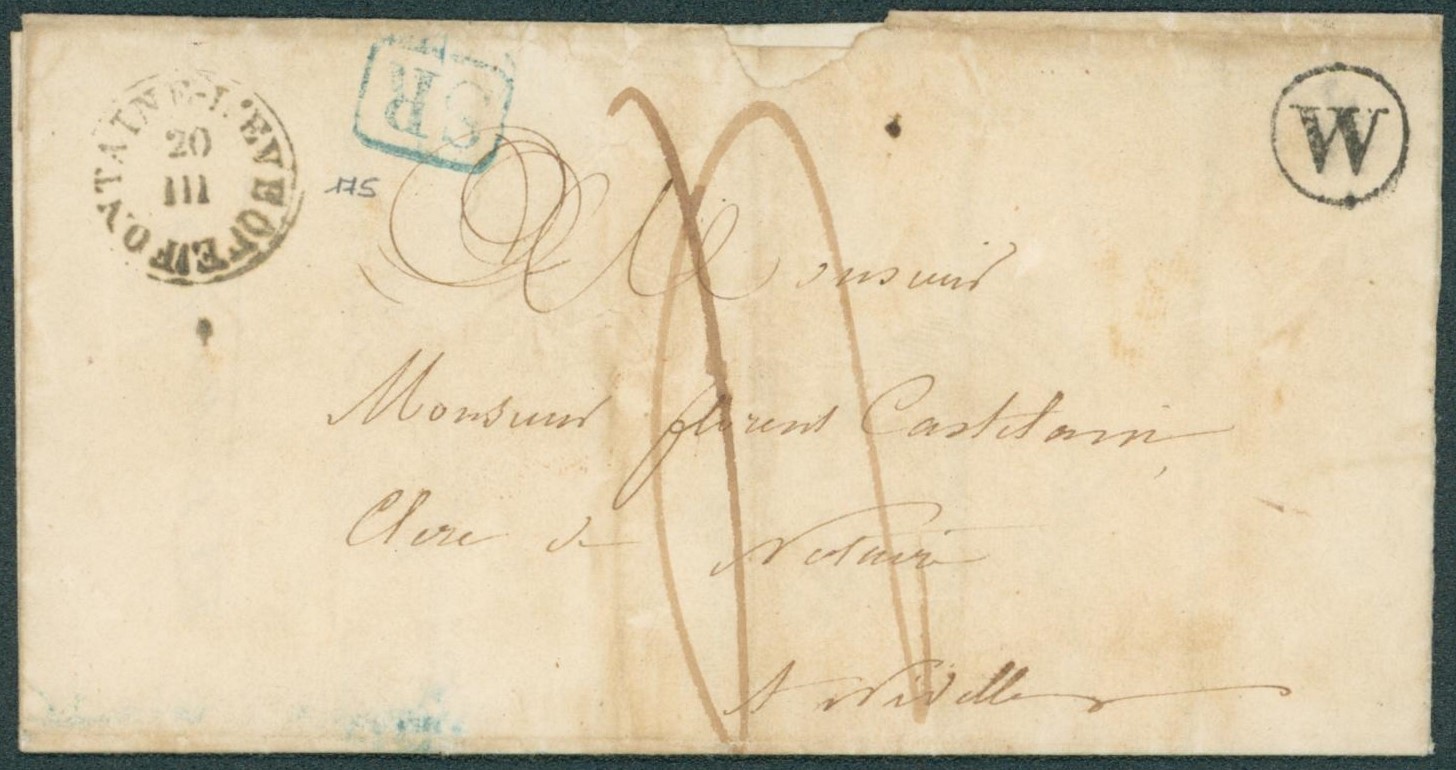 FONTAINE-L'EVEQUE
20
III
SR
W
175
Monsieur
Monsieur florent Castelain
Clerc de Notaire
A Nivelle